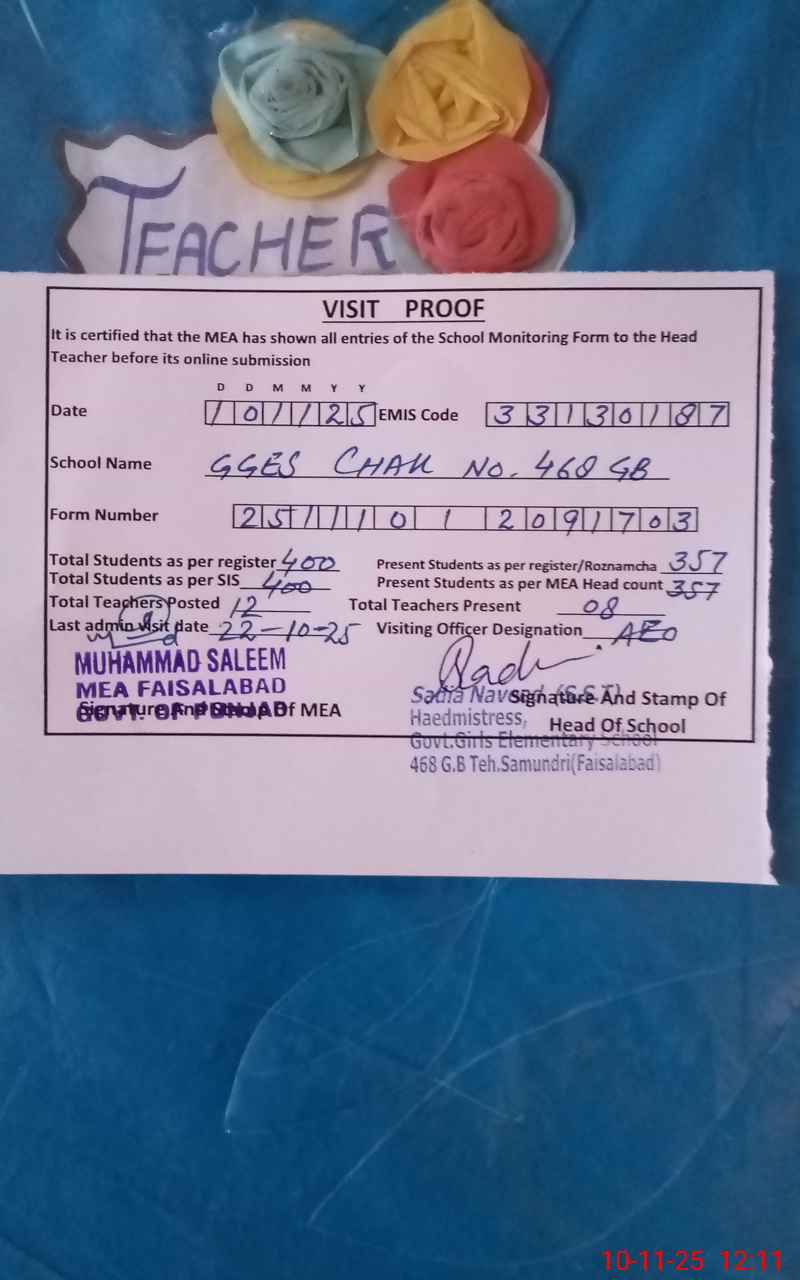 TEACHER
VISIT PROOF
It is certified that the MEA has shown all entries of the School Monitoring Form to the Head
Teacher before its online submission
D D M M Y Y
Date 101125 EMIS Code 33130187
School Name GGES CHAK NO. 468 GB
Form Number 25111012091703
Total Students as per register 400 Present Students as per register/Roznamcha 357
Total Students as per SIS 400 Present Students as per MEA Head count 357
Total Teachers Posted 12 Total Teachers Present 08
Last admin visit date 22-10-25 Visiting Officer Designation AEO
MUHAMMAD SALEEM
MEA FAISALABAD
GOVT. OF PUNJAB
Signature And Stamp Of MEA
Sadia Naveed (S.S.T)
Signature And Stamp Of
Haedmistress,
Head Of School
Govt.Girls Elementary School
468 G.B Teh.Samundri(Faisalabad)
10-11-25 12:11